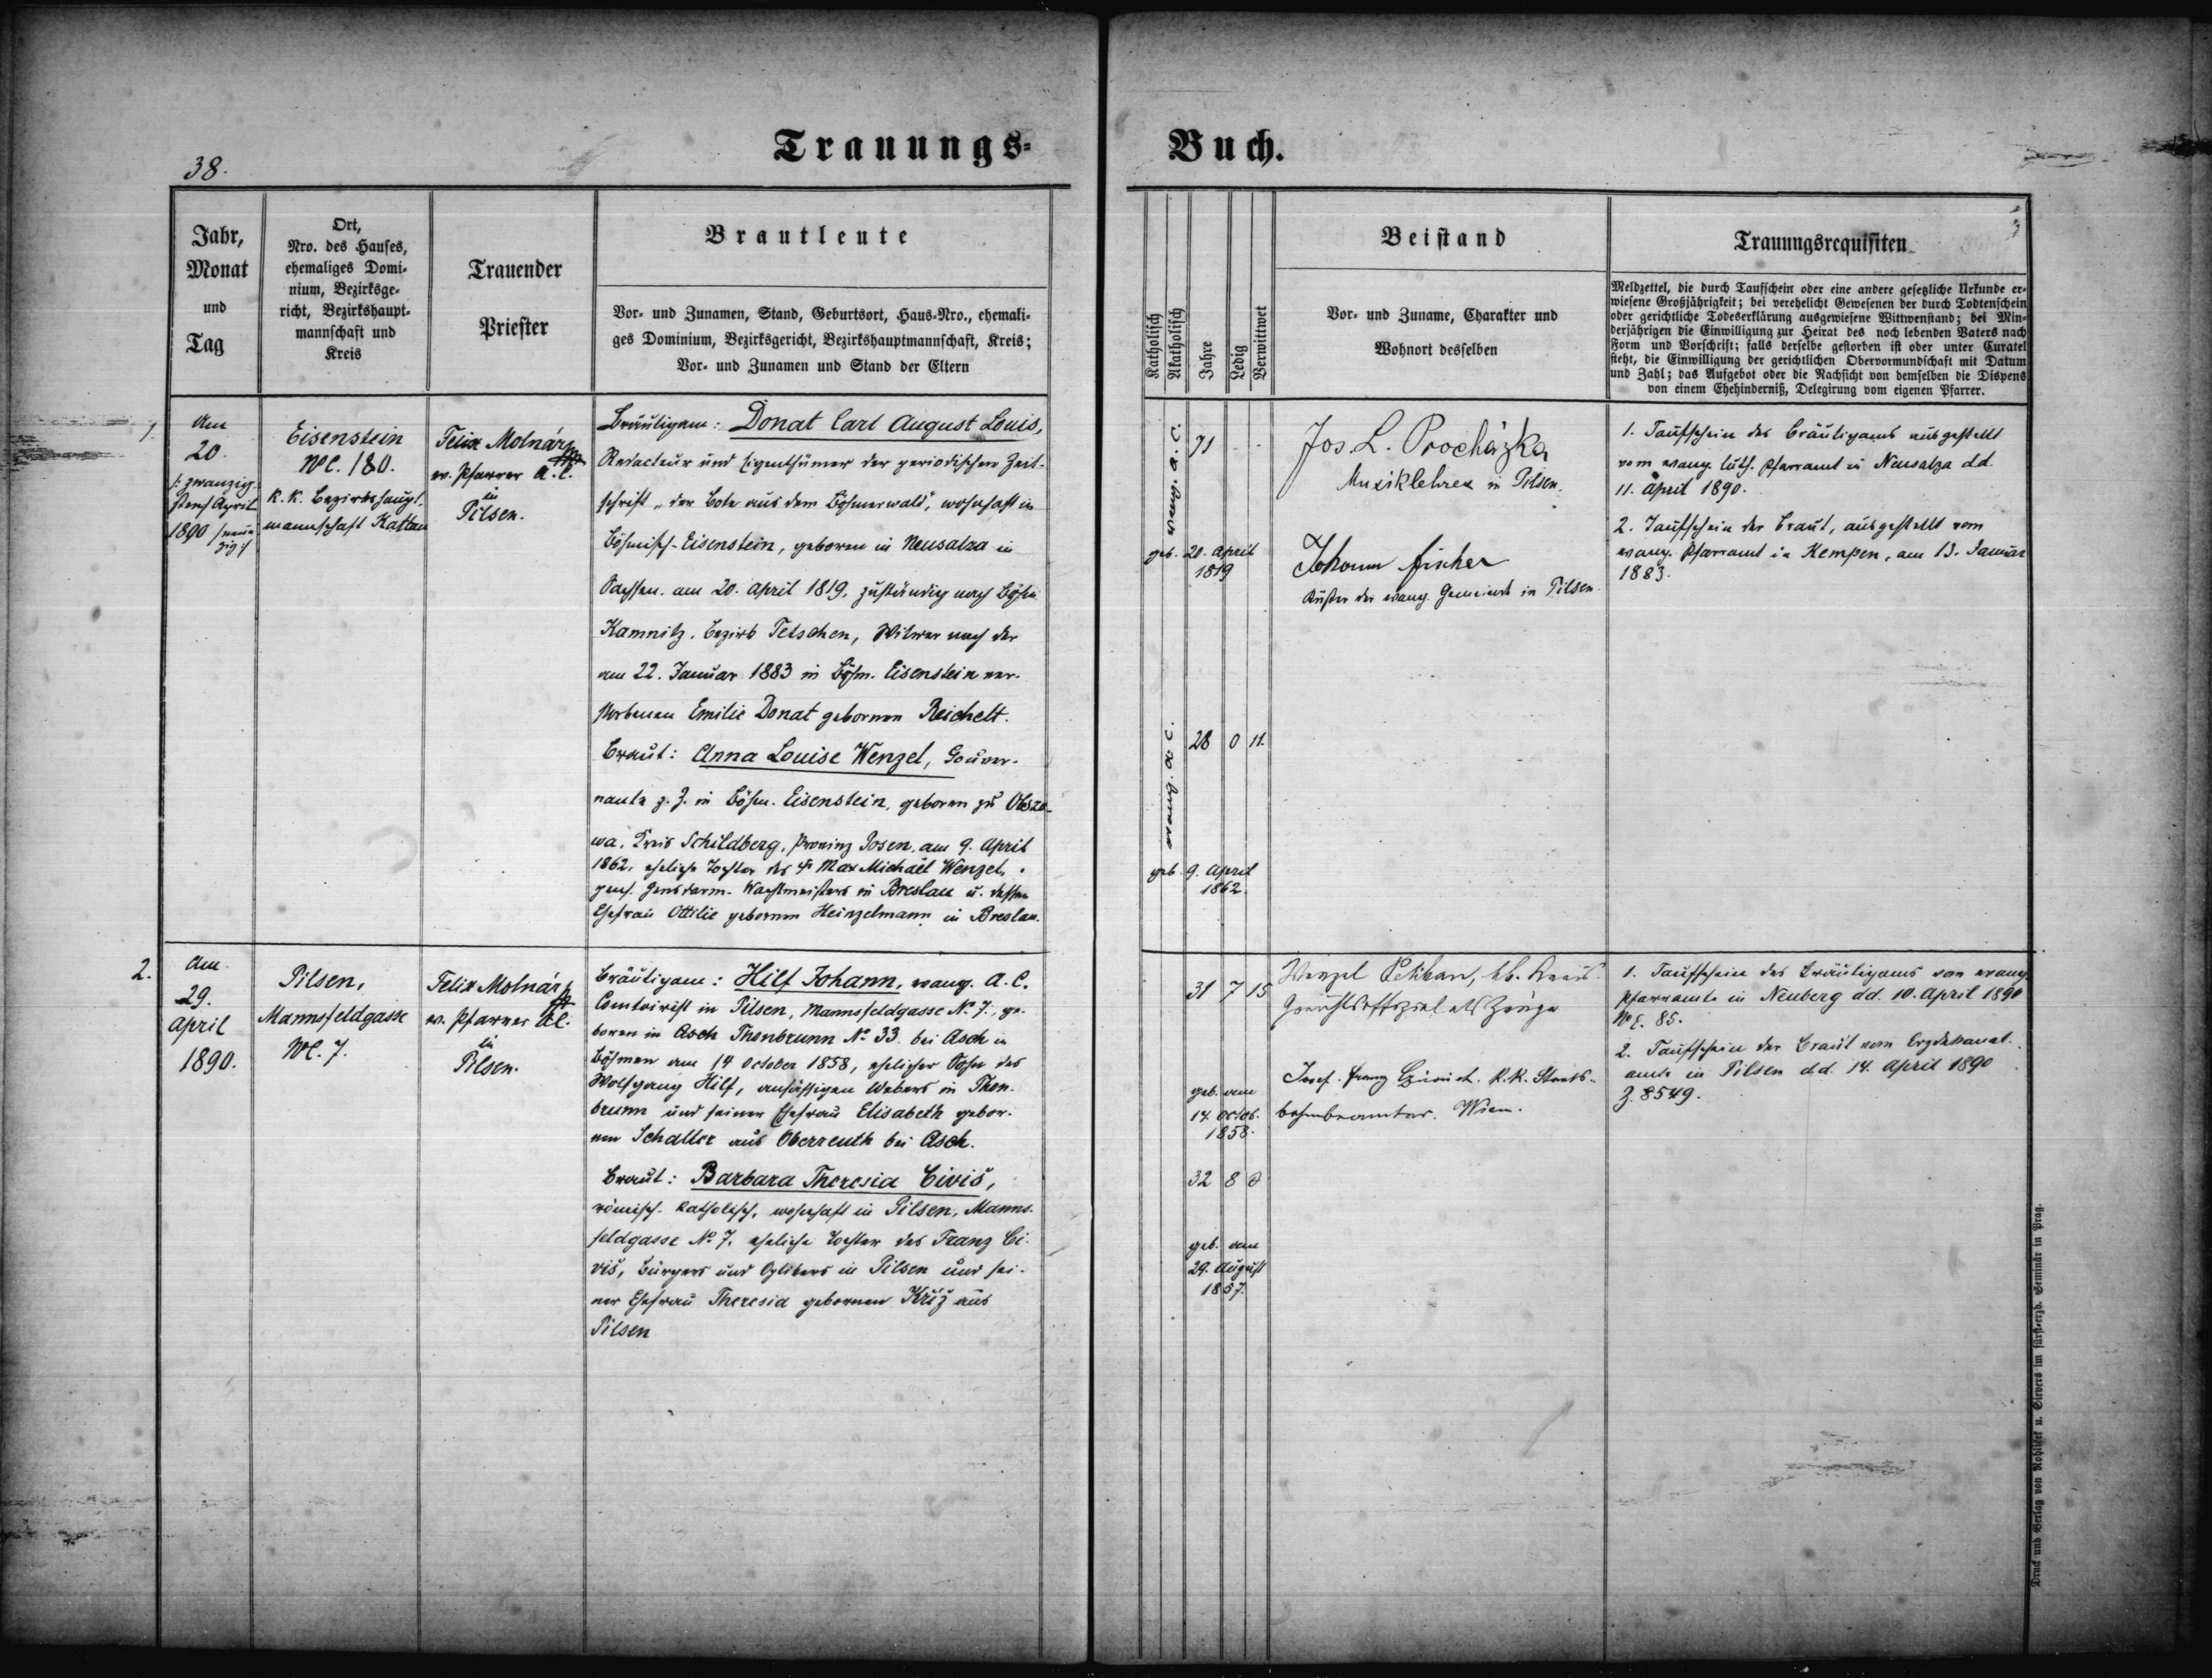 Trauungs-
Buch.
38.
Jahr,
Monat
und
Tag
Ort,
Nro. des Hauses,
ehemaliges Domi-
nium, Bezirksge-
richt, Bezirkshaupt-
mannschaft und
Kreis
Trauender
Priester
Brautleute
Vor- und Zunamen, Stand, Geburtsort, Haus-Nro., ehemali-
ges Dominium, Bezirksgericht, Bezirkshauptmannschaft, Kreis;
Vor- und Zunamen und Stand der Eltern
Katholisch
Akatholisch
Jahre
Ledig
Verwittwet
Beistand
Vor- und Zuname, Charakter und
Wohnort desselben
Trauungsrequisiten
Meldzettel, die durch Taufschein oder eine andere gesetzliche Urkunde er-
wiesene Großjährigkeit; bei verehelicht Gewesenen der durch Todtenschein
oder gerichtliche Todeserklärung ausgewiesene Wittwenstand; bei Min-
derjährigen die Einwilligung zur Heirat des noch lebenden Vaters nach
Form und Vorschrift; falls derselbe gestorben ist oder unter Curatel
steht, die Einwilligung der gerichtlichen Obervormundschaft mit Datum
und Zahl; das Aufgebot oder die Nachsicht von demselben die Dispens
von einem Ehehinderniß, Delegirung vom eigenen Pfarrer.
1.
Am
20.
/: zwanzig-
sten April
1890 /neun-
zig :/
Eisenstein
NC. 180.
K. k. Bezirkshaupt-
mannschaft Kattau
Felix Molnár
ev. Pfarrer A. C.
in
Pilsen.
Bräutigam: Donat Carl August Louis,
Redacteur und Eigenthümer der periodischen Zeit-
schrift „der Bote aus dem Böhmerwald“, wohnhaft in
Böhmisch-Eisenstein, geboren in Neusalza in
Sachsen, am 20. April 1819, zuständig nach Böhm.
Kamnitz, Bezirk Tetschen, Witwer nach der
am 22. Januar 1883 in Böhm. Eisenstein ver-
storbenen Emilie Donat gebornen Reichelt.
Braut: Anna Louise Wenzel, Gouver-
nante z. Z. in Böhm. Eisenstein, geboren zu Obsza-
wa, Kreis Schildberg, Provinz Posen, am 9. April
1862, eheliche Tochter des † Max Michael Wenzel,
gens. Gensdarm-Wachtmeisters in Breslau u. dessen
Ehefrau Ottilie gebornen Heinzelmann in Breslau.
evang. A. C.
71 - -
geb. 20. April
1819
evang. A. C.
28 0 11.
geb. 9. April
1862.
Jos. L. Procházka
Musiklehrer in Pilsen.
Johann Fischer
Küster der evang. Gemeinde in Pilsen.
1. Taufschein des Bräutigams ausgestellt
vom evang. luth. Pfarramt in Neusalza d.d.
11. April 1890.
2. Taufschein der Braut, ausgestellt vom
evang. Pfarramt in Kempen, am 13. Januar
1883.
2.
Am
29.
April
1890.
Pilsen,
Mannsfeldgasse
NC. 7.
Felix Molnár
ev. Pfarrer A.C.
in
Pilsen.
Bräutigam: Hilf Johann, evang. A. C.
Comtoirist in Pilsen, Mannsfeldgasse No. 7., ge-
boren in Asch Thonbrunn No 33. bei Asch in
Böhmen am 14 October 1858, ehelicher Sohn des
Wolfgang Hilf, ansässigen Webers in Thon-
brunn und seiner Ehefrau Elisabeth gebor-
nen Schaller aus Oberreuth bei Asch.
Braut: Barbara Theresia Civiš,
römisch-katholisch, wohnhaft in Pilsen, Manns-
feldgasse No 7. eheliche Tochter des Franz Ci-
viš, Bürgers und in Pilsen und sei-
ner Ehefrau Theresia gebornen Křiž aus
Pilsen
31 7 15
geb. am
14. Octob.
1858.
32 8 0
geb. am
29. August
1857.
Wenzel Petikan, kk. Kreis-
Gerichtsoffizial als Zeuge
Josef Franz k.k. Staats-
bahnbeamter. Wien.
1. Taufschein des Bräutigams vom evang.
Pfarramte in Neuberg dd. 10. April 1890
No E. 85.
2. Taufschein der Braut vom Erzdekanat-
amte in Pilsen d.d. 14. April 1890
Z. 8549.
Druck und Verlag von Rohliček u. Sievers im fürst-erzb. Seminär in Prag.